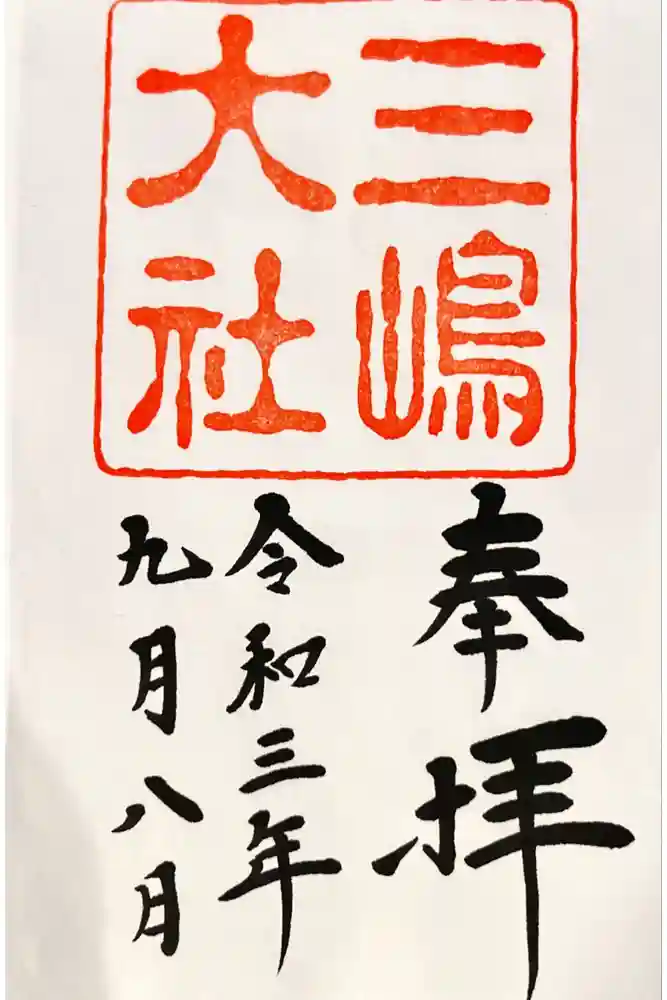 三嶋
大社
奉拝
令和三年
九月八月